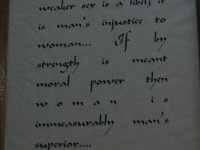 weaker sex is a libel; it
is man's injustice to
woman... If by
strength is meant
moral power then
woman is
immeasurably man's
superior....